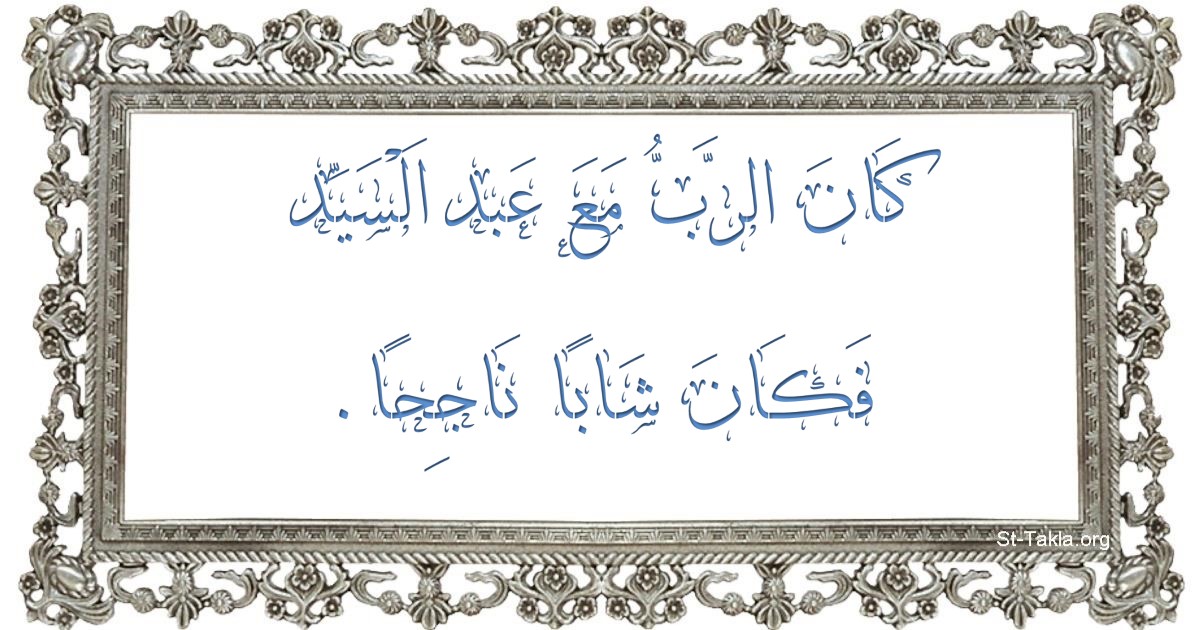 كَانَ الرَّبُّ مَعَ عَبْد اَلْسَيِّد
فَكَانَ شَابًا نَاجِحًا .
St-Takla.org